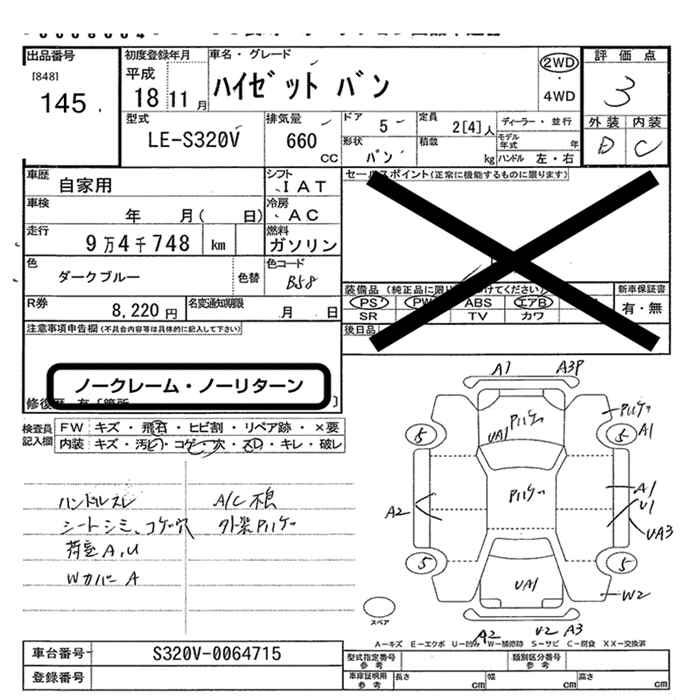 出品番号 初度登録年月 車名・グレード 評価点
[848] 平成 ハイゼット バン 2WD 3
145 18 11月 ・4WD 外装 内装
型式 排気量 ドア 5 定員 2[4]人 ディーラー・並行 D C
LE-S320V 660 CC 形状 バン 積載 kg モデル年式 年 ハンドル 左・右
車歴 自家用 シフト IAT セールスポイント(正常に機能するものに限ります)
車検 年 月( 日) 冷房 AC
走行 9万4千748 km 燃料 ガソリン
色 ダークブルー 色替 色コード B58
装備品 (純正品に限り 付けてください) 新車保証書
PS PW ABS エアB 有・無
SR TV カワ
R券 8,220円 名変通知期限 月 日
後日品
注意事項申告欄(不具合内容等は具体的に記入して下さい)
ノークレーム・ノーリターン
修復歴 有[箇所 ]
検査員記入欄 FW キズ・飛石・ヒビ割・リペア跡・×要
内装 キズ・汚レ・コゲ・穴・スレ・キレ・破レ
ハンドルスレ A/C不良
シートシミ、コゲ穴 外装Pハゲ
荷室A,U
Wカバー A
A1 A3P
Pハゲ Pハゲ
UA1
5 5 A1
Pハゲ
A2 A1
U1
UA3
5 5
UA1 W2
スペア
A2 U2 A3
A−キズ E−エクボ U−凹ミ W−補修跡 S−サビ C−腐食 XX−交換済
車台番号 S320V-0064715 型式指定番号 参考 類別区分番号 参考
登録番号 車庫証明用 参考 長さ cm 幅 cm 高さ cm